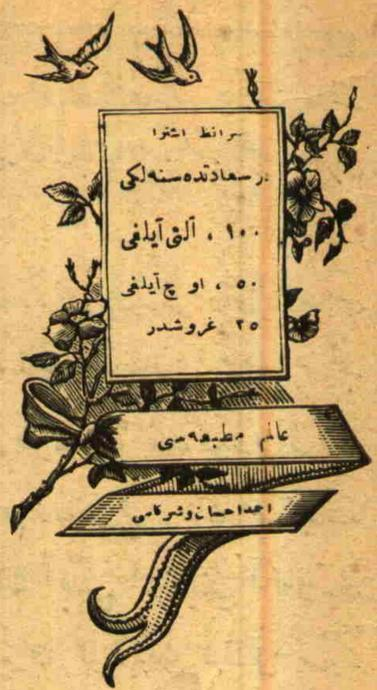 شرائط اشترا
در سعادتده سنه لكی
١٠٠ ، آلتی آیلغی
٥٠ ، اوچ آیلغی
٢٥ غروشدر
عالم مطبعه سی
احمد احسان وشركاسی